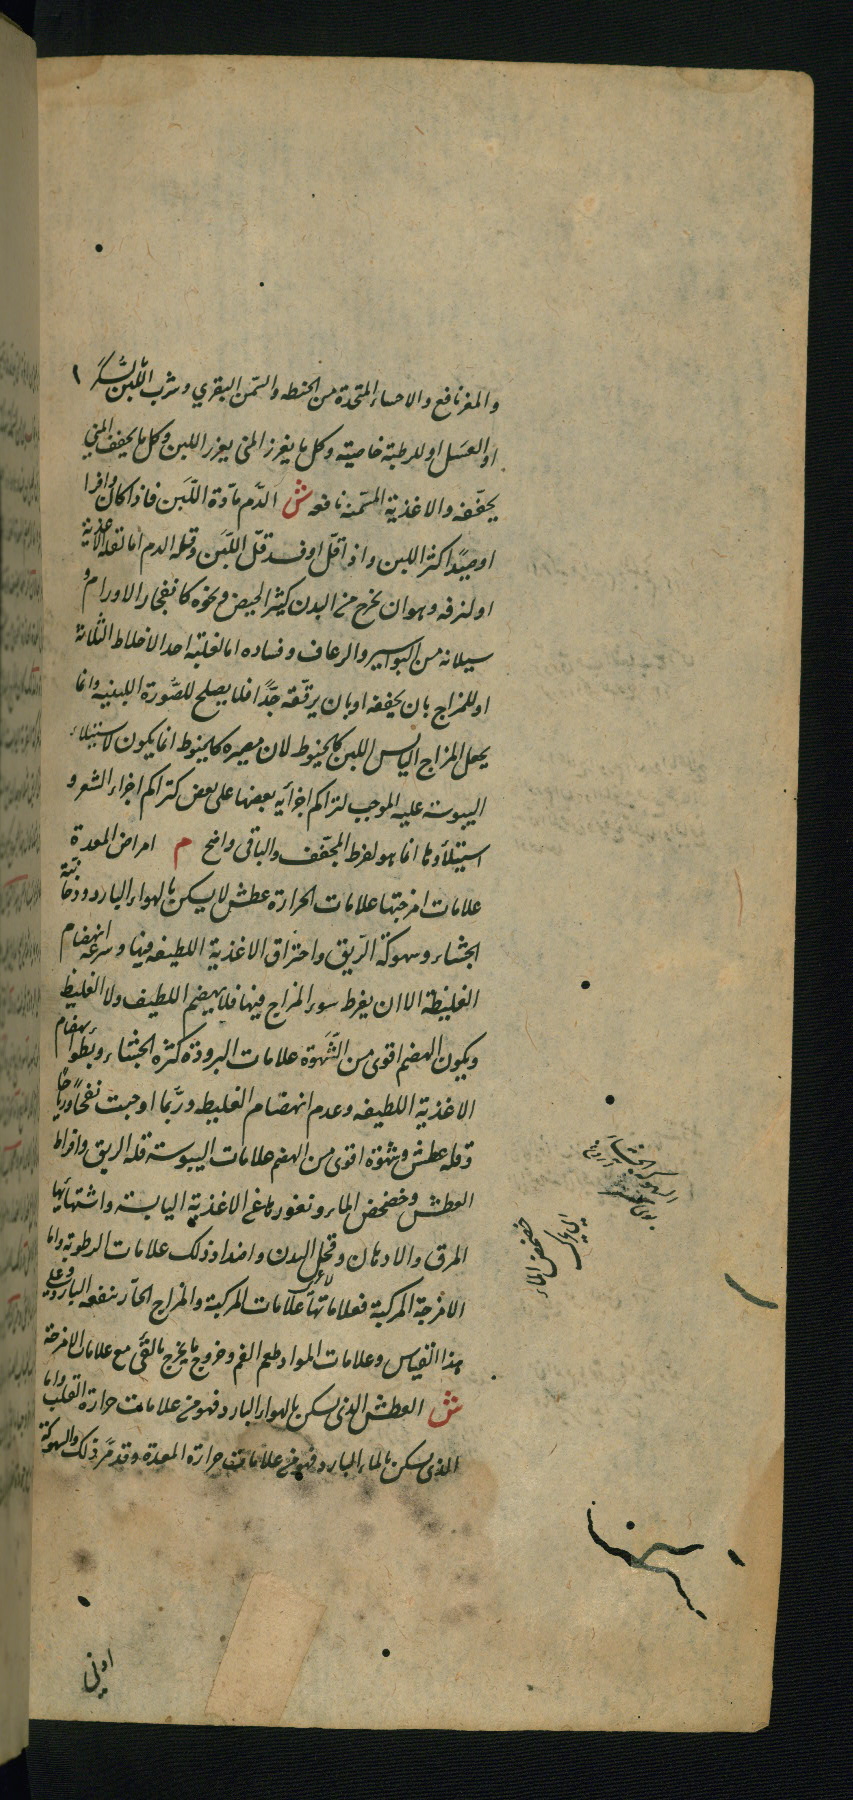 والمغز نافع والاحساء المتخذة من الحنطه والسمن البقري وشرب اللبن بالسكر
او العسل او لرطبة خاصيته وكل ما يغزر المني يغزر اللبن وكل ما يجفف المني
يجففه والاغذية المسمنه نافعه ش الدم مادة اللبن فاذا كان وافرا
او جيدا كثر اللبن واذا قل او فسد قل اللبن وقله الدم اما لقله الاغذية
او لنزفه وهو ان يخرج من البدن كثير الحيض ونحوه كانفجار الاورام و
سيلانه من البواسير والرعاف وفساده اما لغلبة احد الاخلاط الثلاثة
او للمزاج بان يجففه او بان يرققه جدا فلا يصلح للصورة اللبنيه وانما
يجعل المزاج اليابس اللبن كالخيوط لان مصيره كالخيوط انما يكون لاستيلاء
اليبوسة عليه الموجب لتراكم اجزائه بعضها على بعض كتراكم اجزاء الشعر و
استيلاؤها انما هو لفرط المجفف والباقي واضح م امراض المعدة
علامات امزجتها علامات الحرارة عطش لا يسكن بالهواء البارد ودخانية
الجشاء وسهوكة الريق واحتراق الاغذية اللطيفه فيها وسرعه انهضام
الغليظة الا ان يفرط سوء المزاج فيها فلا يهضم اللطيف ولا الغليظ
ويكون الهضم اقوى من الشهوة علامات البرودة كثرة الجشاء وبطو انهضام
الاغذية اللطيفه وعدم انهضام الغليظه وربما اوجبت نفخا ورياحا
وقله عطش وشهوة اقوى من الهضم علامات اليبوسة قله الريق وافراط
العطش وخضخض الماء ونفور عن الاغذية اليابسة واشتهائها
المرق والادهان وقحل البدن واضداد ذلك علامات الرطوبة واما
الامزجة المركبة فعلاماتها علامات المركبة والمزاج الحار ينفعه البارد وعلى
هذا القياس وعلامات المواد طعم الفم وخروج ما يخرج بالقئ مع علامات الامزجة
ش العطش الذي يسكن بالهواء البارد فهو من علامات حرارة القلب واما
الذي يسكن بالماء البارد فهو من علامات حرارة المعدة وقد مر ذلك والسهوكة
خضخض الماء